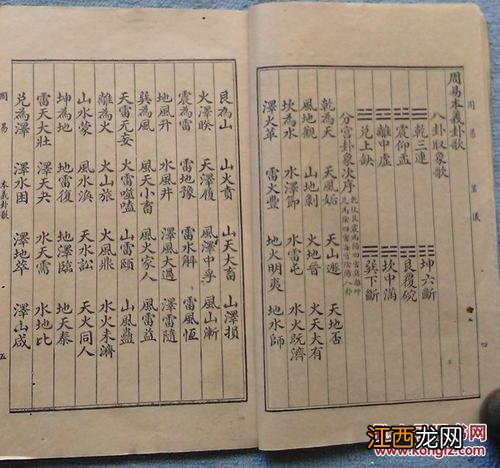 周易 筮儀 四
周易本義卦歌
八卦取象歌
乾三連 坤六斷
震仰盂 艮覆碗
離中虛 坎中滿
兌上缺 巽下斷
分宮卦象次序
乾為天 天風姤 天山遯 天地否
風地觀 山地剝 火地晉 火天大有
坎為水 水澤節 水雷屯 水火既濟
澤火革 雷火豐 地火明夷 地水師
艮為山 山火賁 山天大畜 山澤損
火澤睽 天澤履 風澤中孚 風山漸
震為雷 雷地豫 雷水解 雷風恆
地風升 水風井 澤風大過 澤雷隨
巽為風 風天小畜 風火家人 風雷益
天雷无妄 火雷噬嗑 山雷頤 山風蠱
離為火 火山旅 火風鼎 火水未濟
山水蒙 風水渙 天水訟 天火同人
坤為地 地雷復 地澤臨 地天泰
雷天大壯 澤天夬 水天需 水地比
兌為澤 澤水困 澤地萃 澤山咸
周易 本義卦歌 五
江西龙网